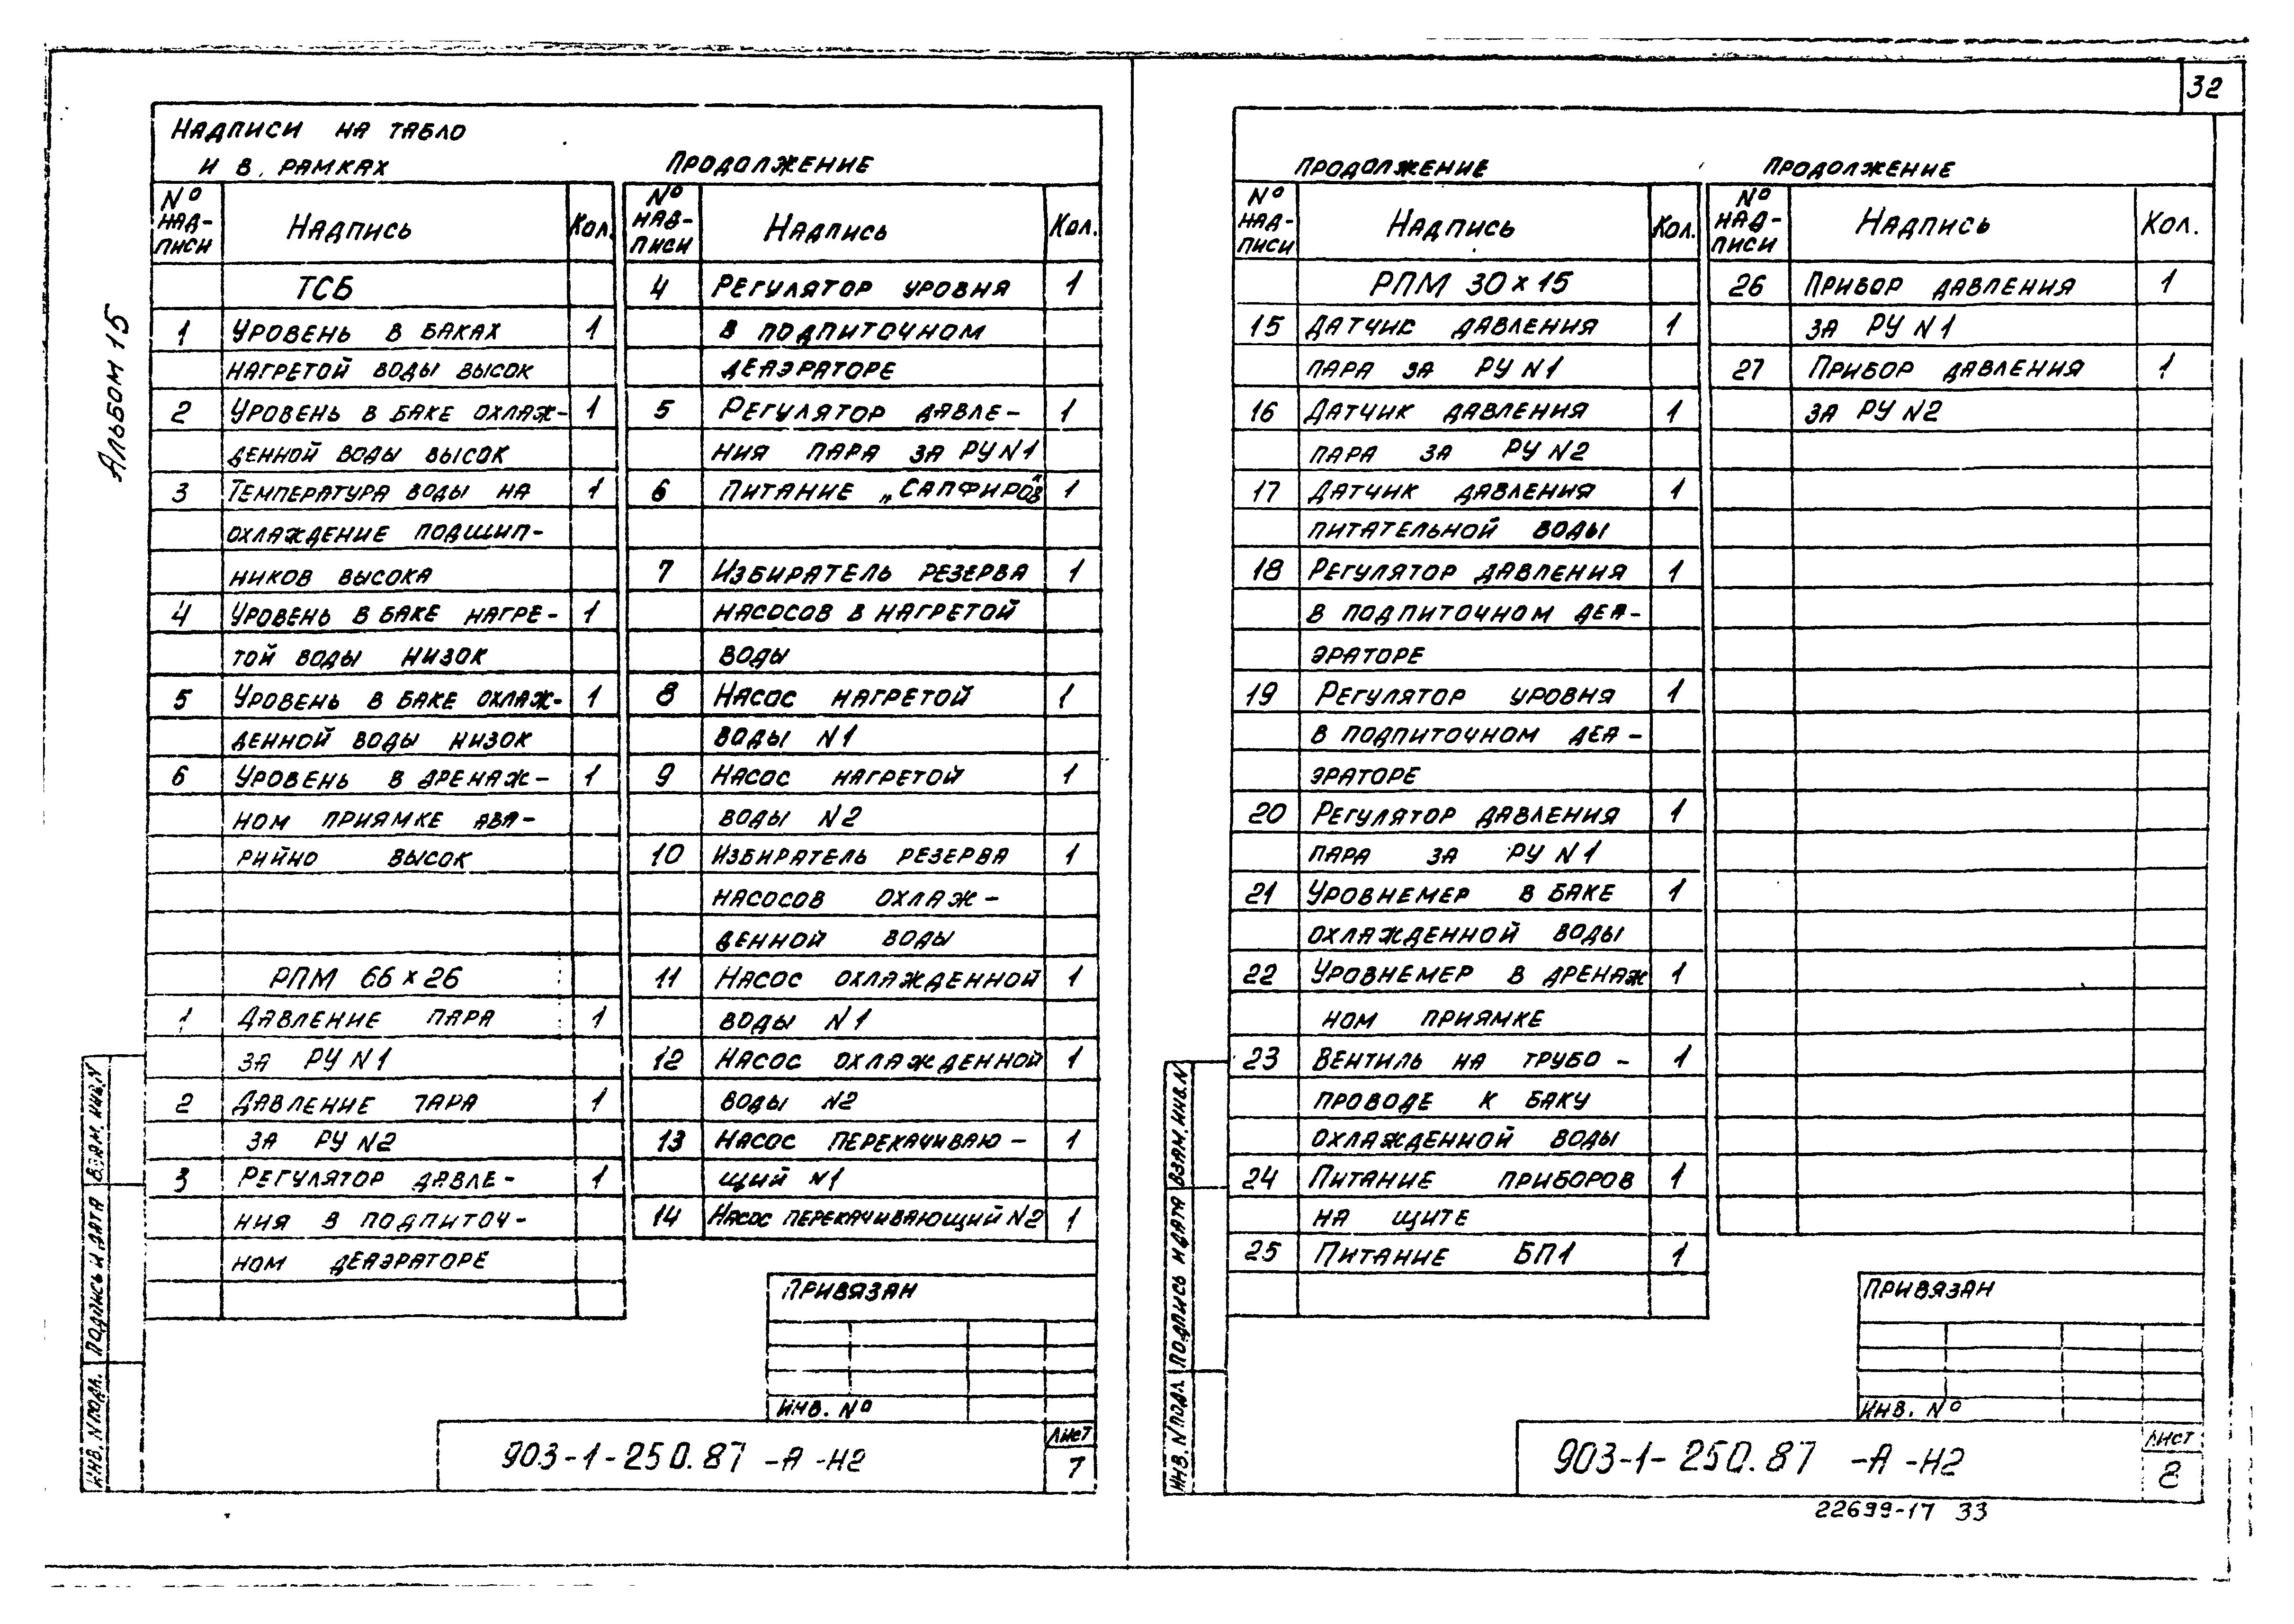 32
Альбом 15
Надписи на табло
и в рамках
Продолжение
№ над-писи Надпись Кол.
ТСБ
1 Уровень в баках 1
нагретой воды высок
2 Уровень в баке охлаж- 1
денной воды высок
3 Температура воды на 1
охлаждение подшип-
ников высока
4 Уровень в баке нагре- 1
той воды низок
5 Уровень в баке охлаж- 1
денной воды низок
6 Уровень в дренаж- 1
ном приямке ава-
рийно высок
РПМ 66×26
1 Давление пара 1
за РУ N1
2 Давление пара 1
за РУ N2
3 Регулятор давле- 1
ния в подпиточ-
ном деаэраторе
№ над-писи Надпись Кол.
4 Регулятор уровня 1
в подпиточном
деаэраторе
5 Регулятор давле- 1
ния пара за РУ N1
6 Питание „Сапфиров" 1
7 Избиратель резерва 1
насосов в нагретой
воды
8 Насос нагретой 1
воды N1
9 Насос нагретой 1
воды N2
10 Избиратель резерва 1
насосов охлаж-
денной воды
11 Насос охлажденной 1
воды N1
12 Насос охлажденной 1
воды N2
13 Насос перекачиваю- 1
щий N1
14 Насос перекачивающий N2 1
Привязан
Инв. №
903-1-250.87 -А -Н2
Лист
7
Инв. N подл. Подпись и дата Взам. инв. N
Продолжение
№ над-писи Надпись Кол.
РПМ 30×15
15 Датчик давления 1
пара за РУ N1
16 Датчик давления 1
пара за РУ N2
17 Датчик давления 1
питательной воды
18 Регулятор давления 1
в подпиточном деа-
эраторе
19 Регулятор уровня 1
в подпиточном деа-
эраторе
20 Регулятор давления 1
пара за РУ N1
21 Уровнемер в баке 1
охлажденной воды
22 Уровнемер в дренаж 1
ном приямке
23 Вентиль на трубо- 1
проводе к баку
охлажденной воды
24 Питание приборов 1
на щите
25 Питание БП1 1
Продолжение
№ над-писи Надпись Кол.
26 Прибор давления 1
за РУ N1
27 Прибор давления 1
за РУ N2
Привязан
Инв. №
903-1-250.87 -А -Н2
Лист
8
Инв. N подл. Подпись и дата Взам. инв. N
22699-17 33